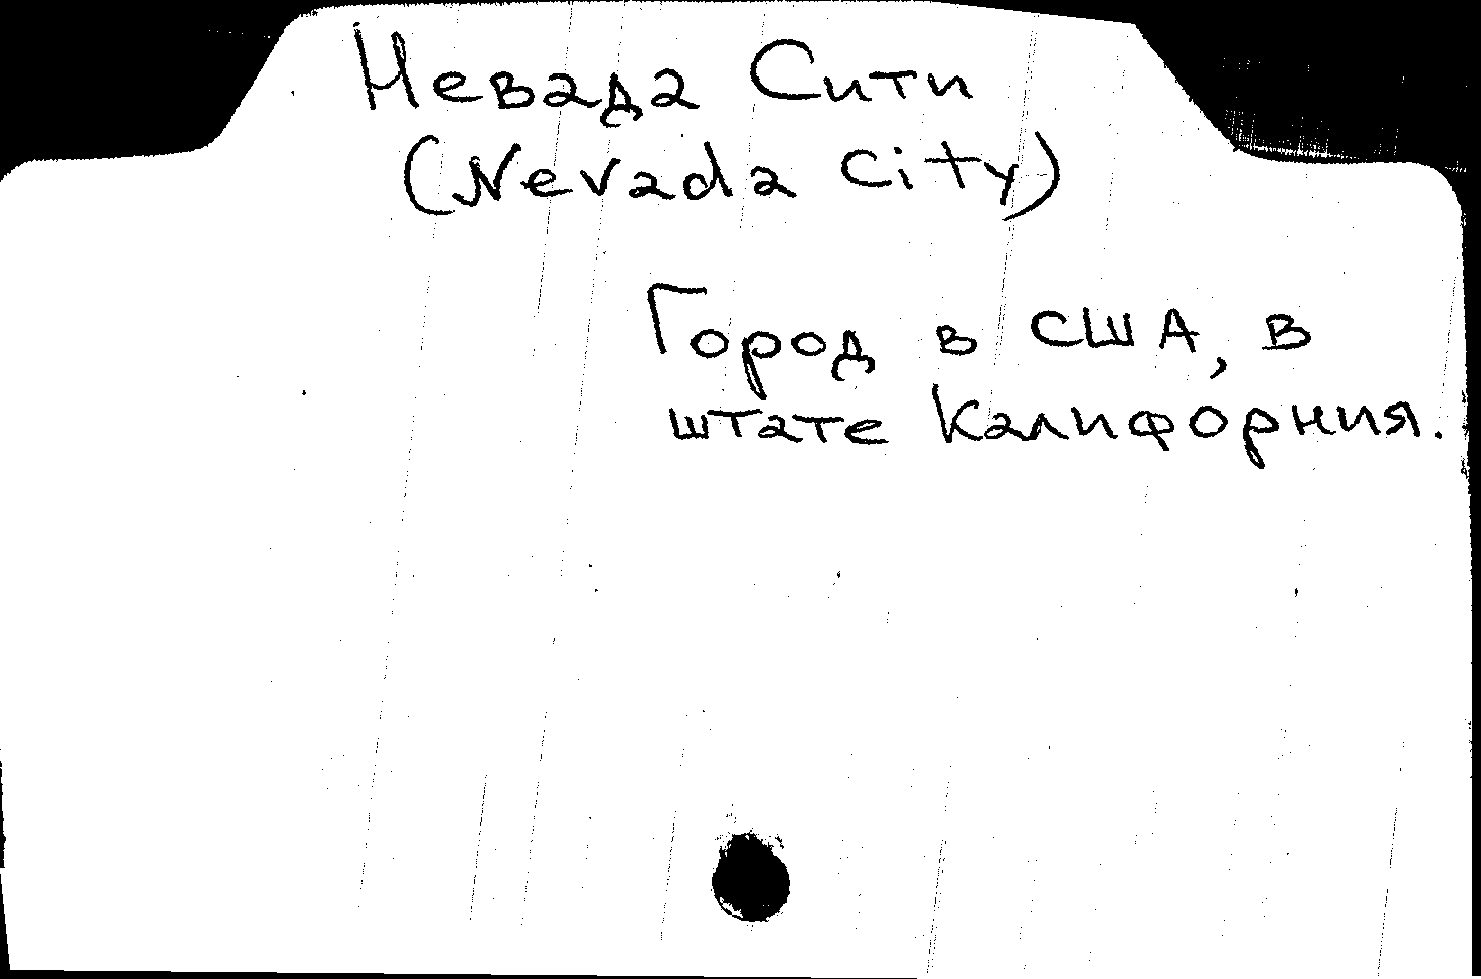 Невада Сити
(Nevada City)
Город в США, в
штате Калифорния.